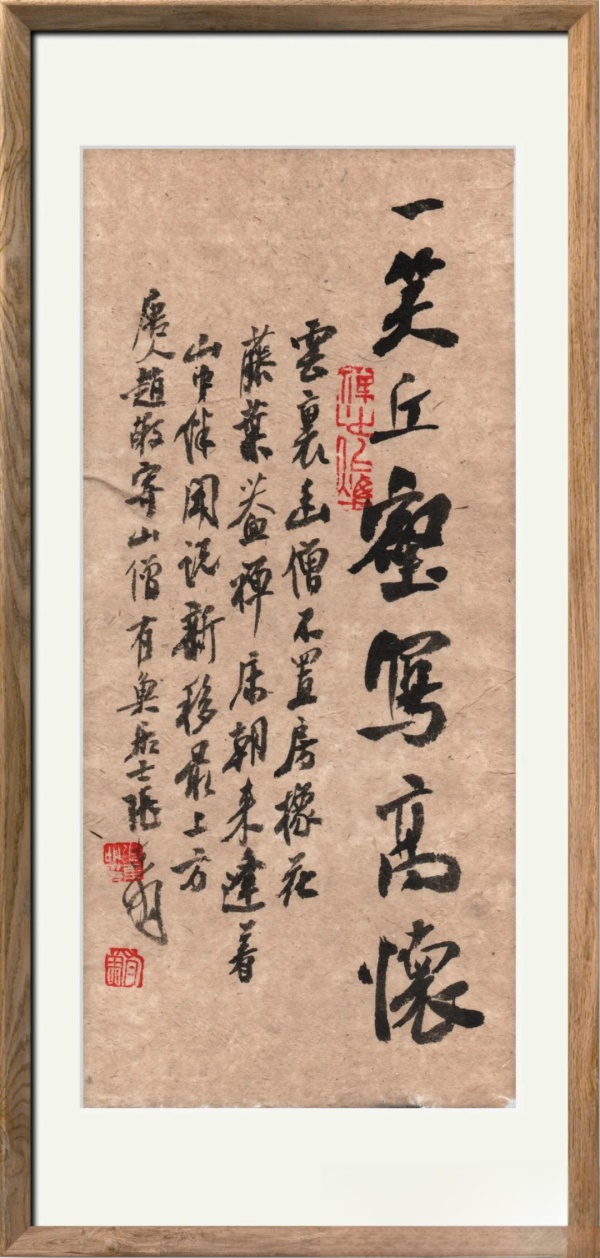 一笑丘壑寫高懷
雲裏幽僧不置房橡花
藤葉蓋禪床朝来逢着
山中伴聞說新移最上方
唐人趙嘏寄山僧有居士張